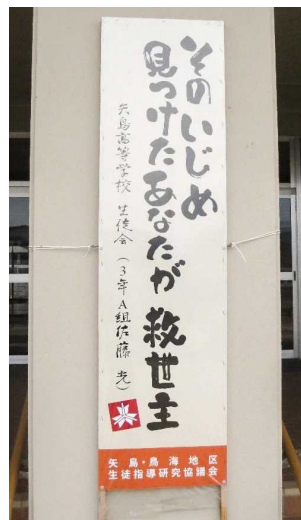 そのいじめ
見つけたあなたが救世主
矢島高等学校 生徒会(3年A組佐藤 光)
矢島・鳥海地区
生徒指導研究協議会